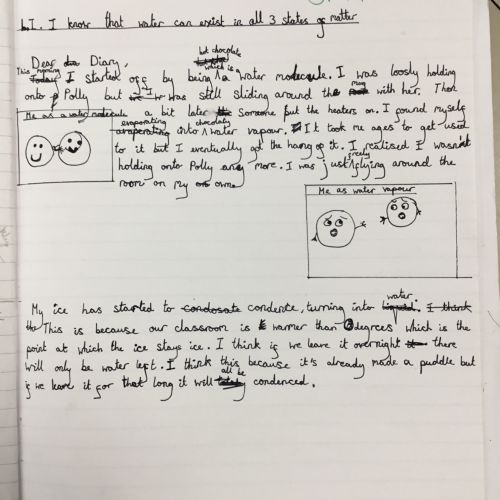 L.I. I know that water can exist in all 3 states of matter
Dear Diary,
This morning I started off by being hot chocolate which is a water molecule. I was loosly holding
onto Polly but I was still sliding around the mug with her. Then
Me as a water molecule
a bit later someone put the heaters on. I found myself
evaporating into chocolaty water vapour. It took me ages to get used
to it but I eventually got the hang of it. I realised I wasn't
holding onto Polly any more. I was just freely flying around the
room on my own.
Me as water vapour
My ice has started to condosate condente, turning into liquid. water. I think
This is because our classroom is warmer than 0 degrees which is the
point at which the ice stays ice. I think if we leave it overnight there
will only be water left. I think this because it's already made a puddle but
if we leave it for that long it will all be condenced.